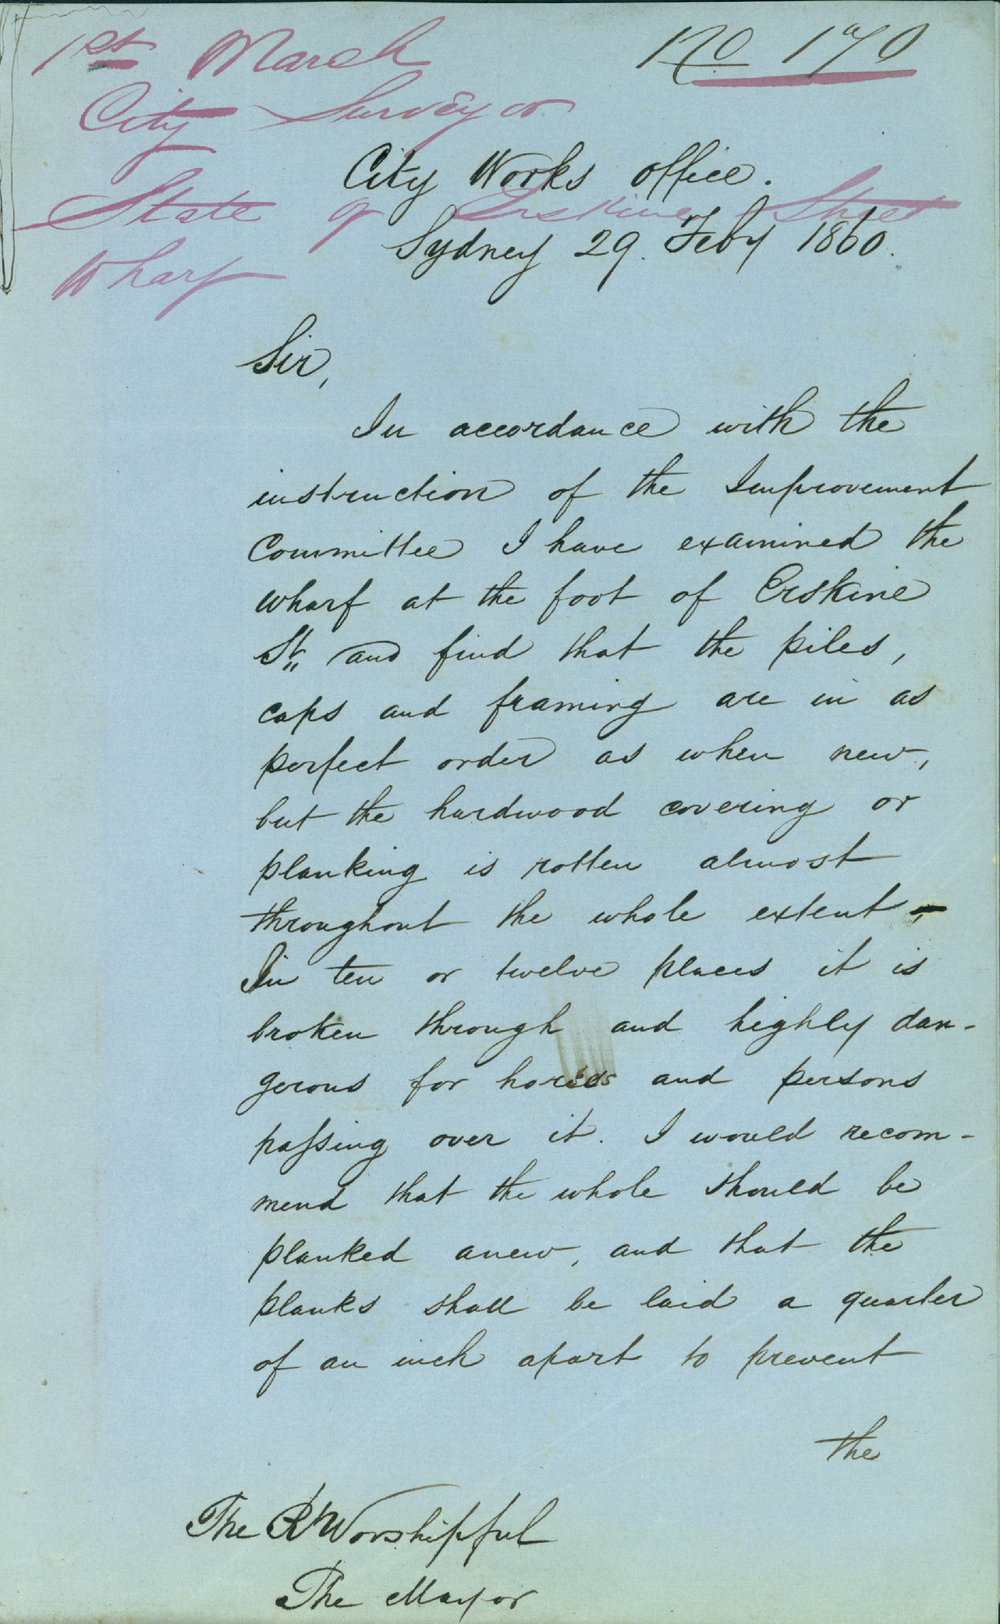 1st March
No 170
City Surveyor
City Works Office.
State of Erskine Street
Sydney 29. Feby 1860.
Wharf
Sir,
In accordance with the
instruction of the Improvement
Committee I have examined the
wharf at the foot of Erskine
St,, and find that the piles,
caps and framing are in as
perfect order as when new,
but the hardwood covering or
planking is rotten almost
throughout the whole extent,-
In ten or twelve places it is
broken through and highly dan-
gerous for horses and persons
passing over it. I would recom-
mend that the whole should be
planked anew, and that the
planks shall be laid a quarter
of an inch apart to prevent
the
The Rt Worshipful
The Mayor